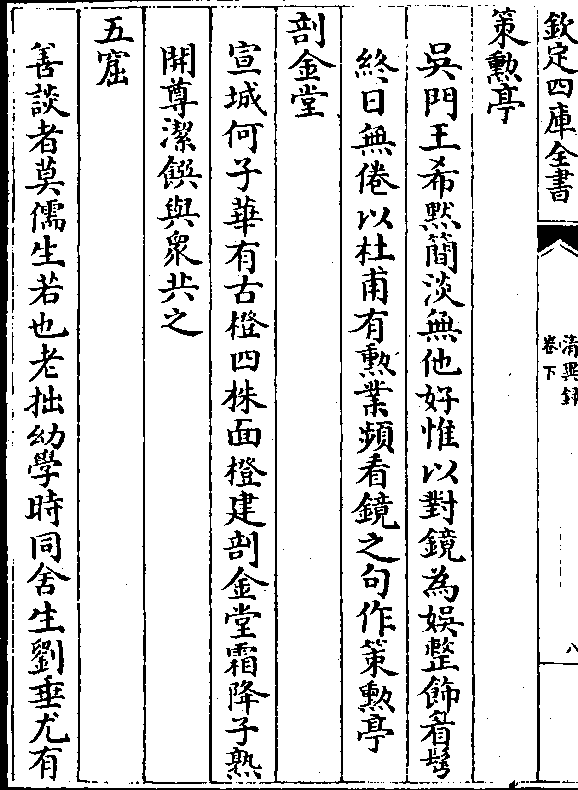 欽定四庫全書
清異録
卷下
八
策勲亭
吳門王希黙簡淡無他好惟以對鏡為娛整飾眉髩
終日無倦以杜甫有勲業頻看鏡之句作策勲亭
剖金堂
宣城何子華有古橙四株面橙建剖金堂霜降子熟
開尊潔饌與衆共之
五窟
善談者莫儒生若也老拙幼學時同舍生劉垂尤有